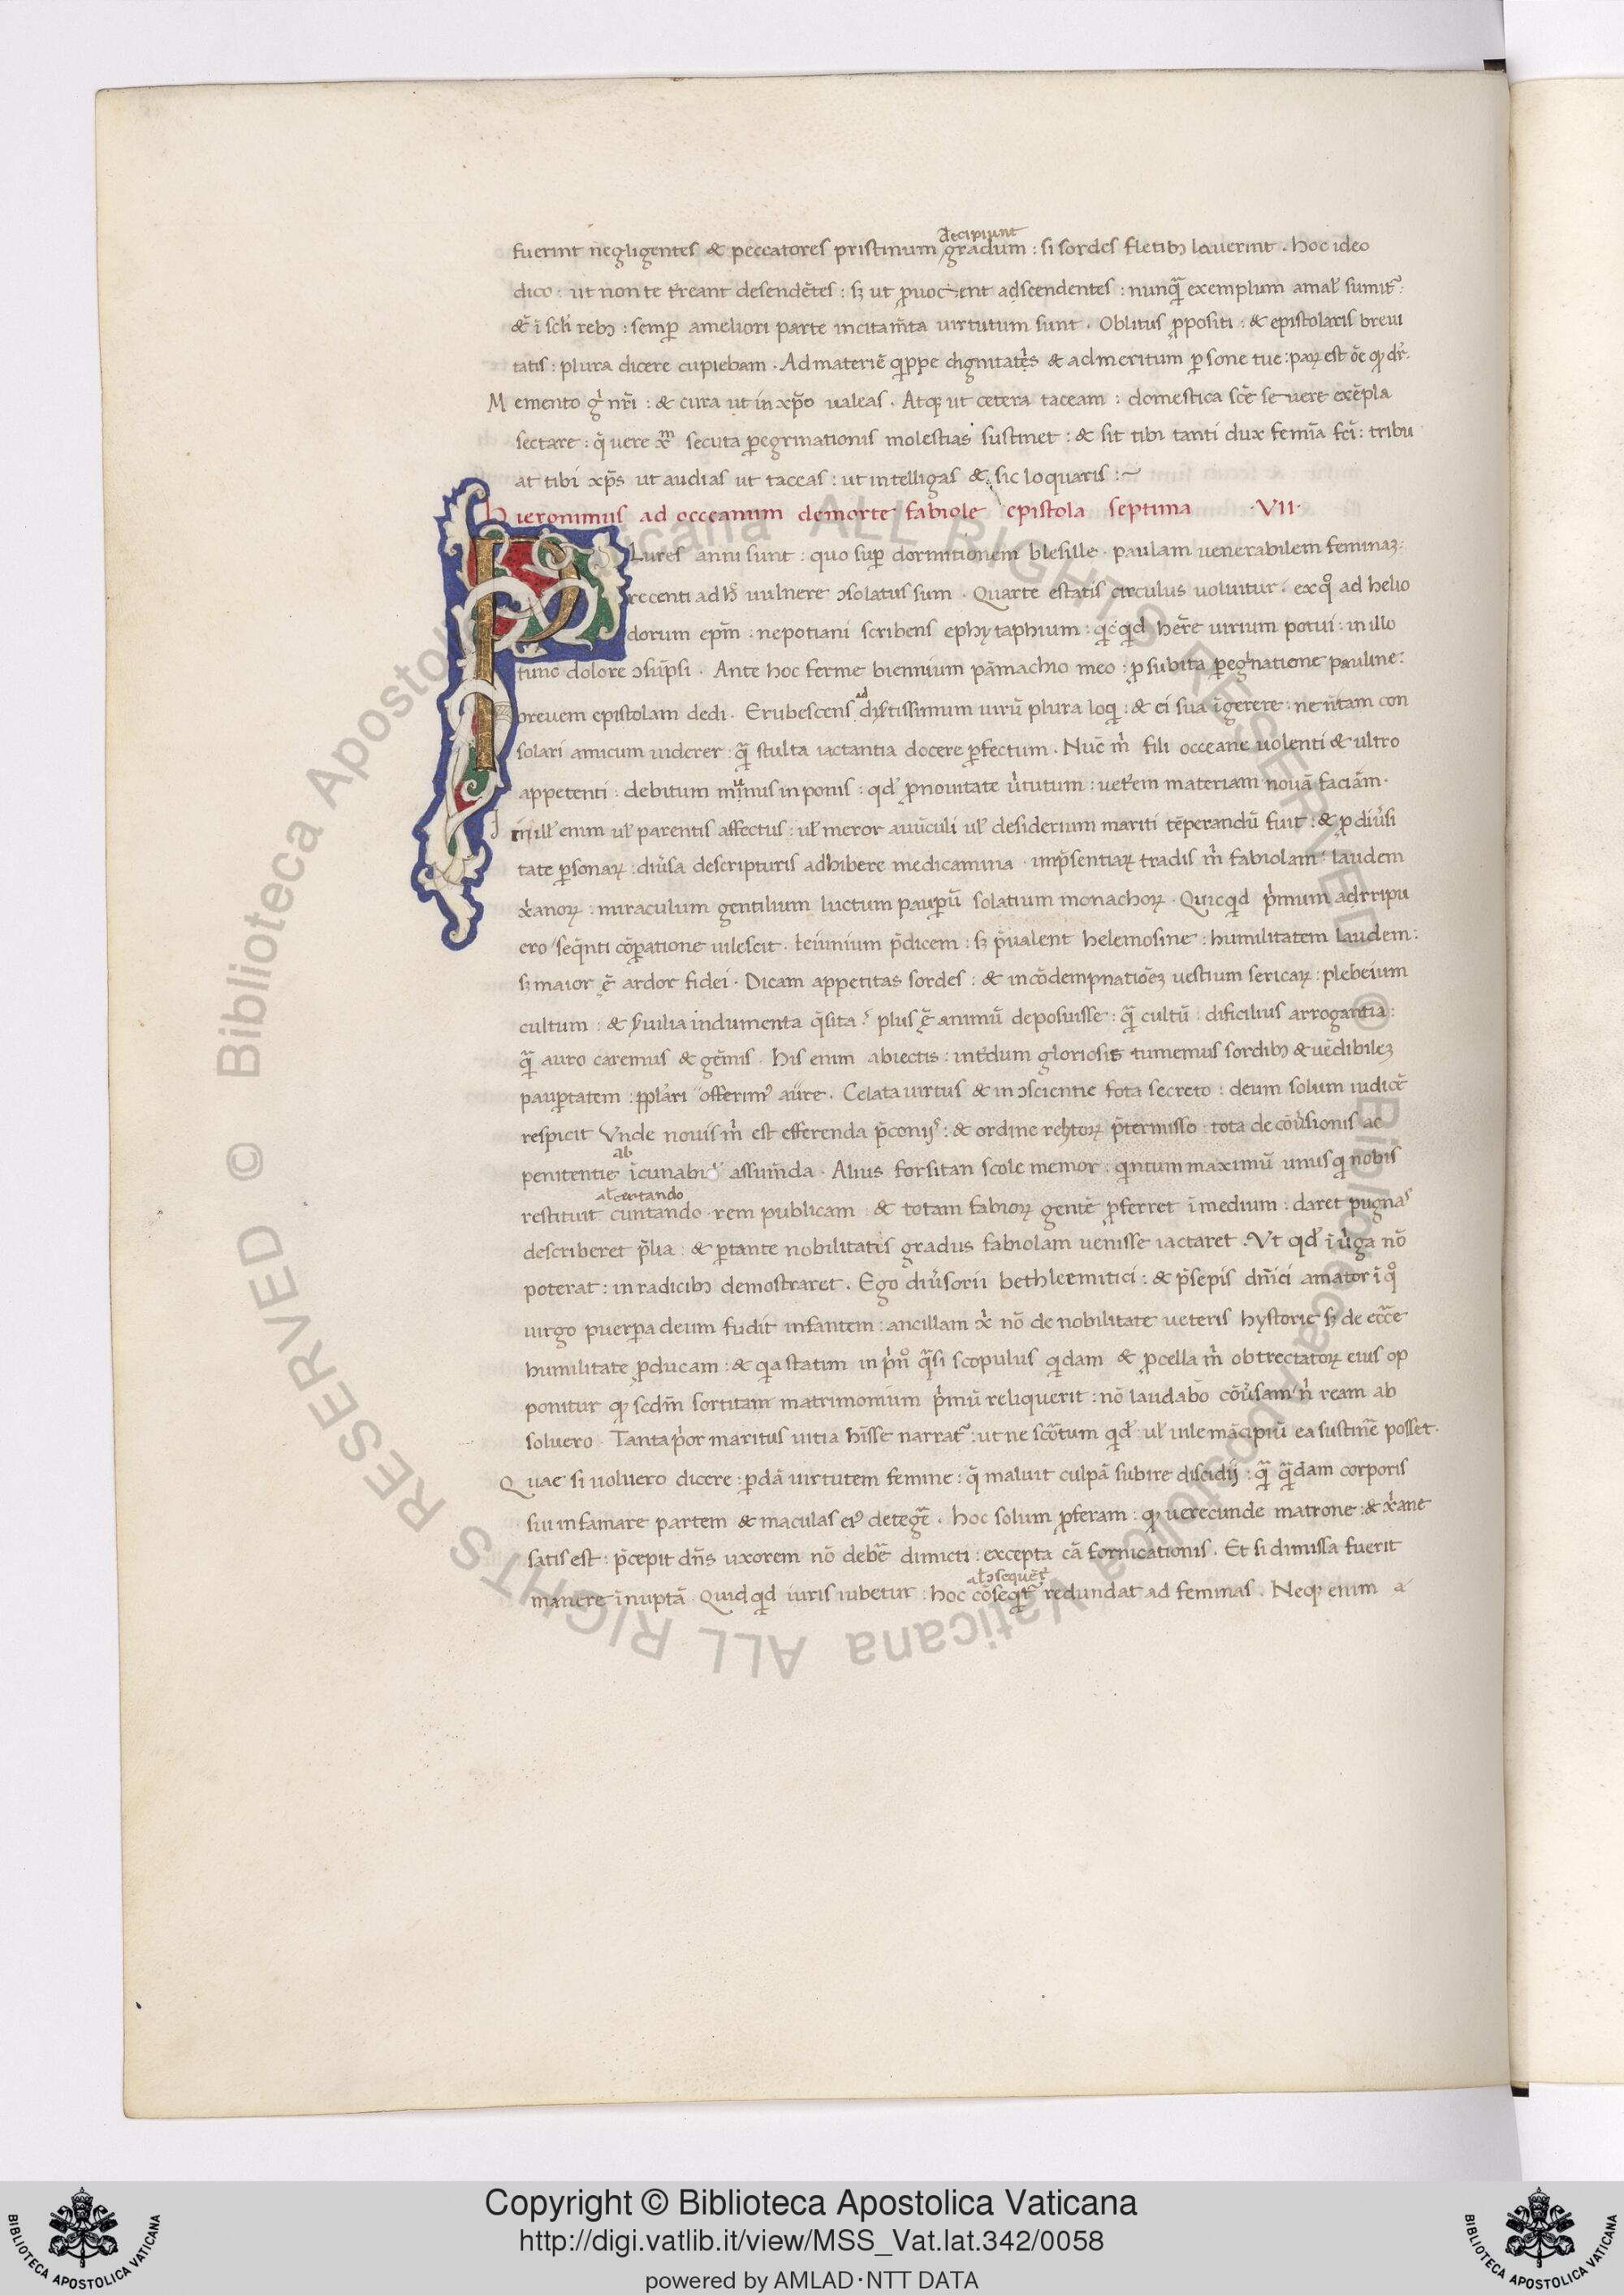 decipiunt
fuerint negligentes & peccatores pristinum gradum : si sordes fletibꝫ lauerint . hoc ideo
dico : ut non te treant desendētes : sꝫ ut ꝓuocent adscendentes : nunq̄ exemplum amal' sumit᷑ :
&̄ ī sc̄is rebꝫ : semꝑ ameliori parte incitam̄ta uirtutum sunt . Oblitus ꝓpositi : & epistolaris breui
tatis : plura dicere cupiebam . Ad materiē quippe dignitatēs & ad meritum ꝑsone tue : paꝝ est ōe qꝫ dr̄ .
Memento gͥ nr̄i : & cura ut in xp̄o ualeas . Atqꝫ ut cetera taceam : domestica sc̄e se uere exēpla
sectare : q̄ uere x̄m secuta ꝑegrinationis molestias sustinet : & sit tibi tanti dux femīa fc̄i : tribu
at tibi xp̄s ut audias ut taceas : ut intelligas & sic loquaris :~
Hieronimus ad occeanum de morte fabiole epistola septima ·VII·
PLures anni sunt : quo suꝑ dormitionem blesille · paulam uenerabilem feminaꝫ :
recenti adh̄ uulnere ɔsolatus sum . Quarte estatis circulus uoluitur . ex qͦ ad helio
dorum ep̄m : nepotiani scribens ephytaphium : qͥcqͥd hēre uirium potui : in illo
tunc dolore ɔsūpsi . Ante hoc ferme biennium pāmachio meo : ꝓ subita ꝑegͥnatione pauline :
breuem epistolam dedi . Erubescens ad disertissimum uirū plura loqͥ : & ei sua īgerere : ne n̄ tam con
solari amicum uiderer : q̄ stulta iactantia docere ꝑfectum . Nūc m̄ fili occeane uolenti & ultro
appetenti : debitum munus inponis : qd' ꝓ nouitate uͥtutum : uet'em materiam nouā faciām .
In ill' enim ul' parentis affectus : ul' meror auūculi ul' desiderium mariti tēperandū fuit : & ꝓ diūsi
tate ꝑsonaꝝ : diūsa descripturis adhibere medicamina . imp̄sentiaꝝ tradis m̄ fabiolam : laudem
xͥanoꝝ : miraculum gentilium luctum pauꝑū solatium monachoꝝ . Quicqͥd pͥmum adrripu
ero / seq̄nti cōꝑatione uilescit . Ieiunium p̄dicem : sꝫ p̄ualent helemosine : humilitatem laudem :
sꝫ maior ē ardor fidei . Dicam appetitas sordes : & incōdempnatiōeꝫ uestium sericaꝝ : plebeium
cultum : & seruilia indumenta q̄sita : plus ē animū deposuisse : q̄ cultū : dificilius arrogantia :
q̄ auro caremus & gēmis . his enim abiectis : int'dum gloriosis tumemus sordibꝫ & uēdibileꝫ
pauꝑtatem : pplari offerimꝰ aure . Celata uirtus & in ɔscientie fota secreto : deum solum iudicē
respicit Vnde nouis m̄ est efferenda p̄conijs : & ordine rethoꝝ p̄termisso : tota de cōuͥsionis ac
ab
penitentie īcunabulꝭ assum̄da . Alius forsitan scole memor : qͥntum maximū unus qͥ nobis
al' certando
restituit cuntando rem publicam & totam fabioꝝ gentē ꝓferret ī medium : daret pugnas
describeret p̄lia : & ꝑ tante nobilitatis gradus fabiolam uenisse iactaret . Vt qd' ī uͥga nō
poterat : in radicibꝫ demostraret . Ego diūsorii bethleemitici : & p̄sepis dn̄ici amator ī qͦ
uirgo puerꝑa deum fudit infantem : ancillam xͥ nō de nobilitate ueteris hystorie sꝫ de ecc̄e
humilitate ꝓducam : & qͥa statim in pͥnͦ q̄si scopulus qͥdam & ꝓcella m̄ obtrectatoꝝ eius op
ponitur qꝫ scd̄m sortitam matrimonium pͥmū reliquerit : nō laudabo cōuͥsam / nͥ ream ab
soluero . Tanta pͥor maritus uitia hīsse narrat᷑ : ut ne scōtum qd' ul' uile mācipiū ea sustinēe posset .
Quae si uoluero dicere : ꝑdā uirtutem femine : q̄ maluit culpā subire discidij : q̄ q̄dam corporis
sui infamare partem & maculas eiꝰ detegēe . hoc solum ꝓferam : qꝫ uerecunde matrone : & xͥane
satis est : p̄cepit dn̄s uxorem nō debēe dimicti : excepta cā fornicationis . Et si dimissa fuerit
al' ɔsequēt᷑
manere īnuptā Quidqͥd iuris iubetur : hoc cōseqͥt᷑ redundat ad feminas . Neqꝫ enim a
Copyright © Biblioteca Apostolica Vaticana
http://digi.vatlib.it/view/MSS_Vat.lat.342/0058
powered by AMLAD·NTT DATA
BIBLIOTECA APOSTOLICA VATICANA
BIBLIOTECA APOSTOLICA VATICANA
© Biblioteca Apostolica Vaticana ALL RIGHTS RESERVED
© Biblioteca Apostolica Vaticana ALL RIGHTS RESERVED